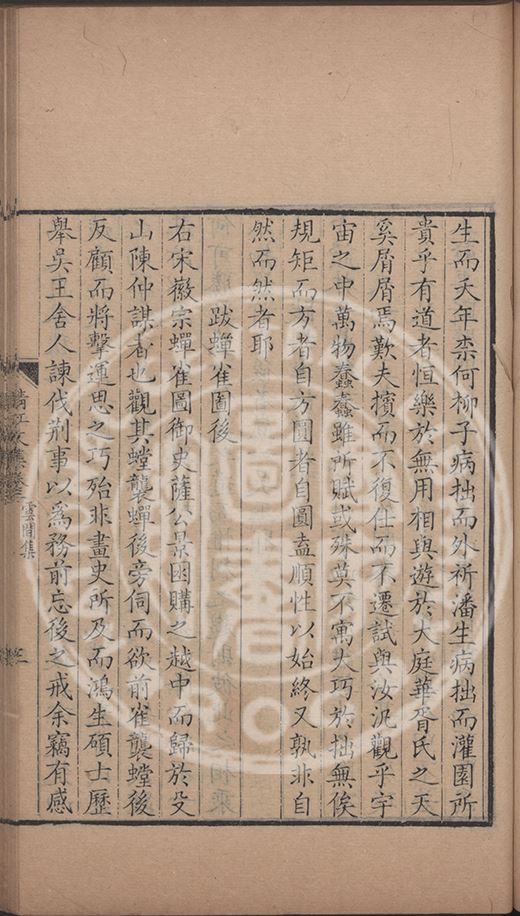 生而夭年柰何柳子病拙而外祈潘生病拙而灌園所
貴乎有道者恒樂於無用相與遊於大庭華胥氏之天
奚屑屑焉歎夫擯而不復仕而不遷試與汝汎觀乎宇
宙之中萬物蠢蠢雖所賦或殊莫不寓大巧於拙無俟
規矩而方者自方圓者自圓盍順性以始終又孰非自
然而然者耶
跋蟬雀圖後
右宋徽宗蟬雀圖御史薩公景因購之越中而歸於
山陳仲謀者也觀其螳襲蟬後旁伺而欲前雀襲螳後
反顧而將擊運思之巧殆非畫史所及而鴻生碩士歷
舉吳王舍人諫伐荊事以爲務前忘後之戒余竊有感
清江文集卷三
雲間集